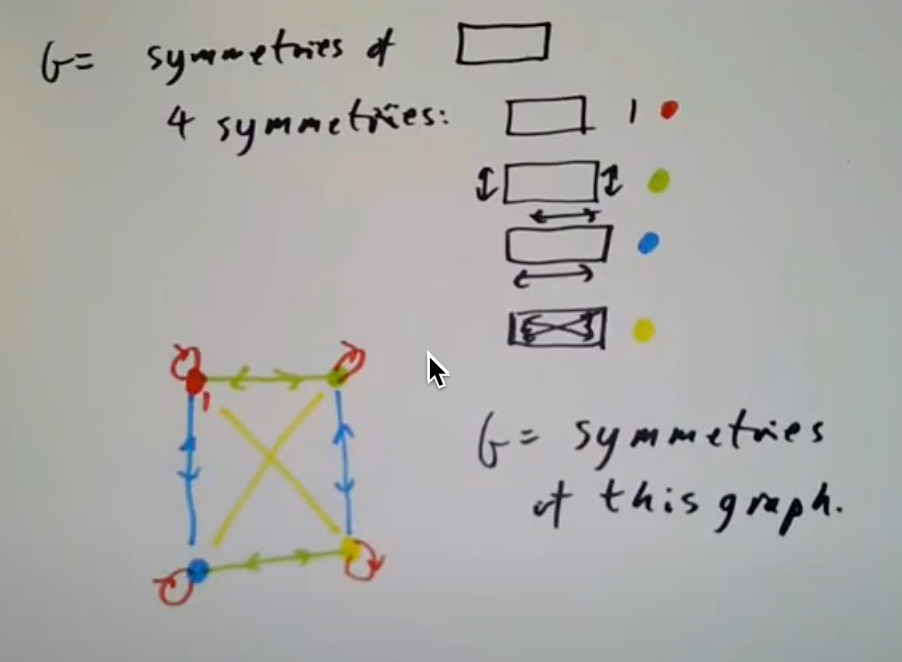 G= symmetries of
4 symmetries:
1
1
G= symmetries
of this graph.